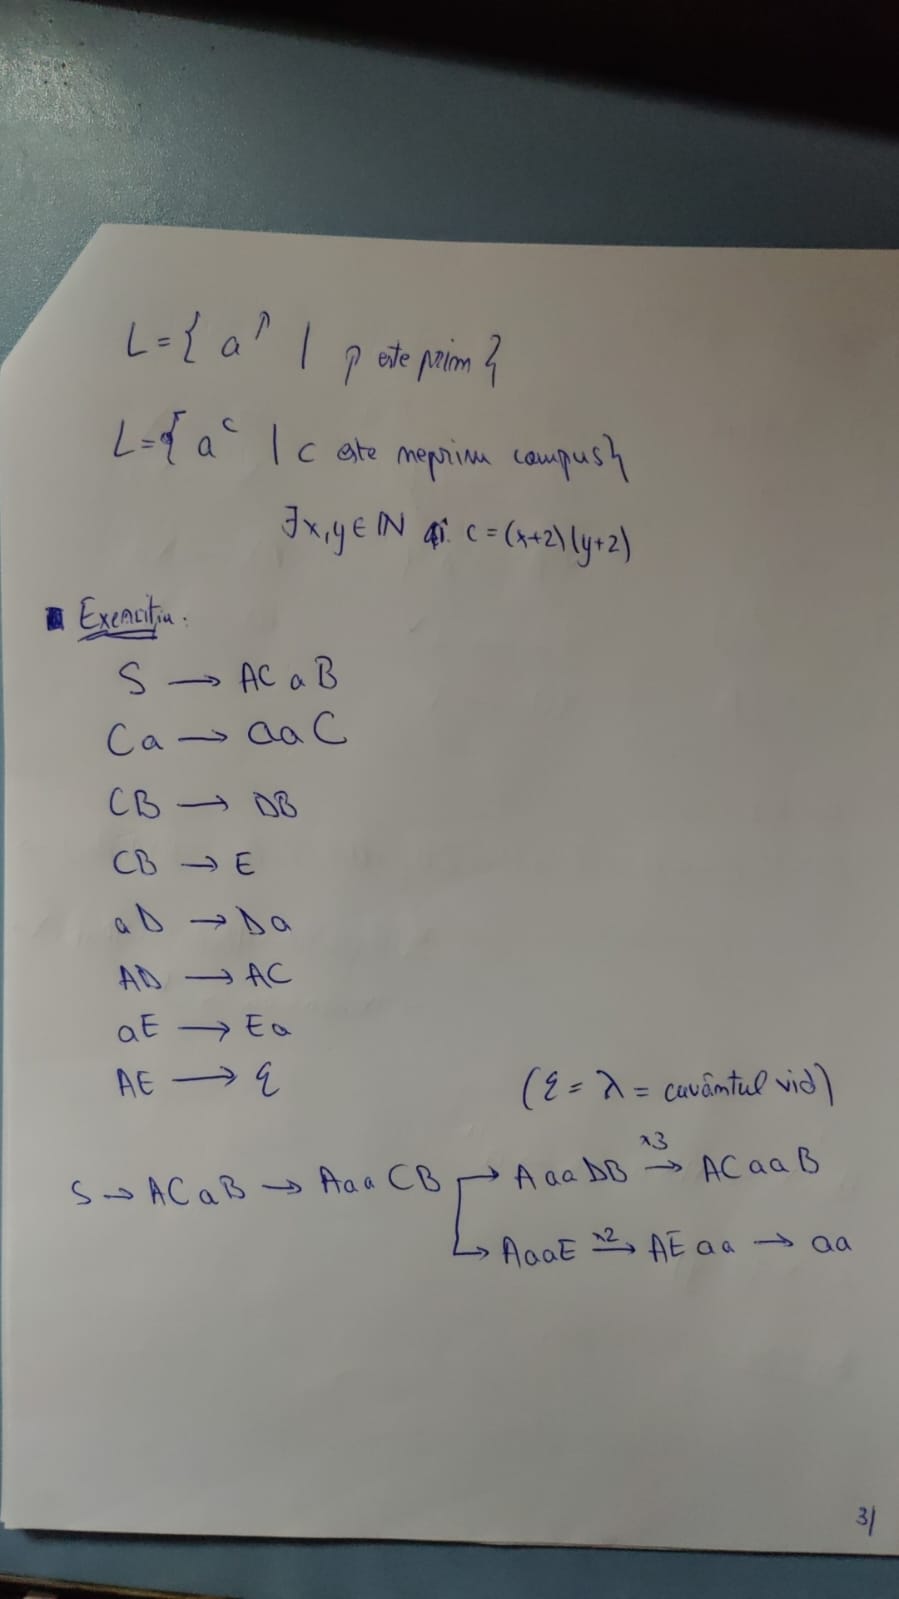 L={ a^p | p este prim }
L={ a^c | c este neprim compus}
∃x,y∈ℕ aî. c=(x+2)(y+2)
Exercițiu.
S → ACaB
Ca → aaC
CB → DB
CB → E
aD → Da
AD → AC
aE → Ea
AE → ε
(ε = λ = cuvântul vid)
S → ACaB → AaaCB → AaaDB x3→ ACaaB
↳ AaaE x2→ AEaa → aa
3/